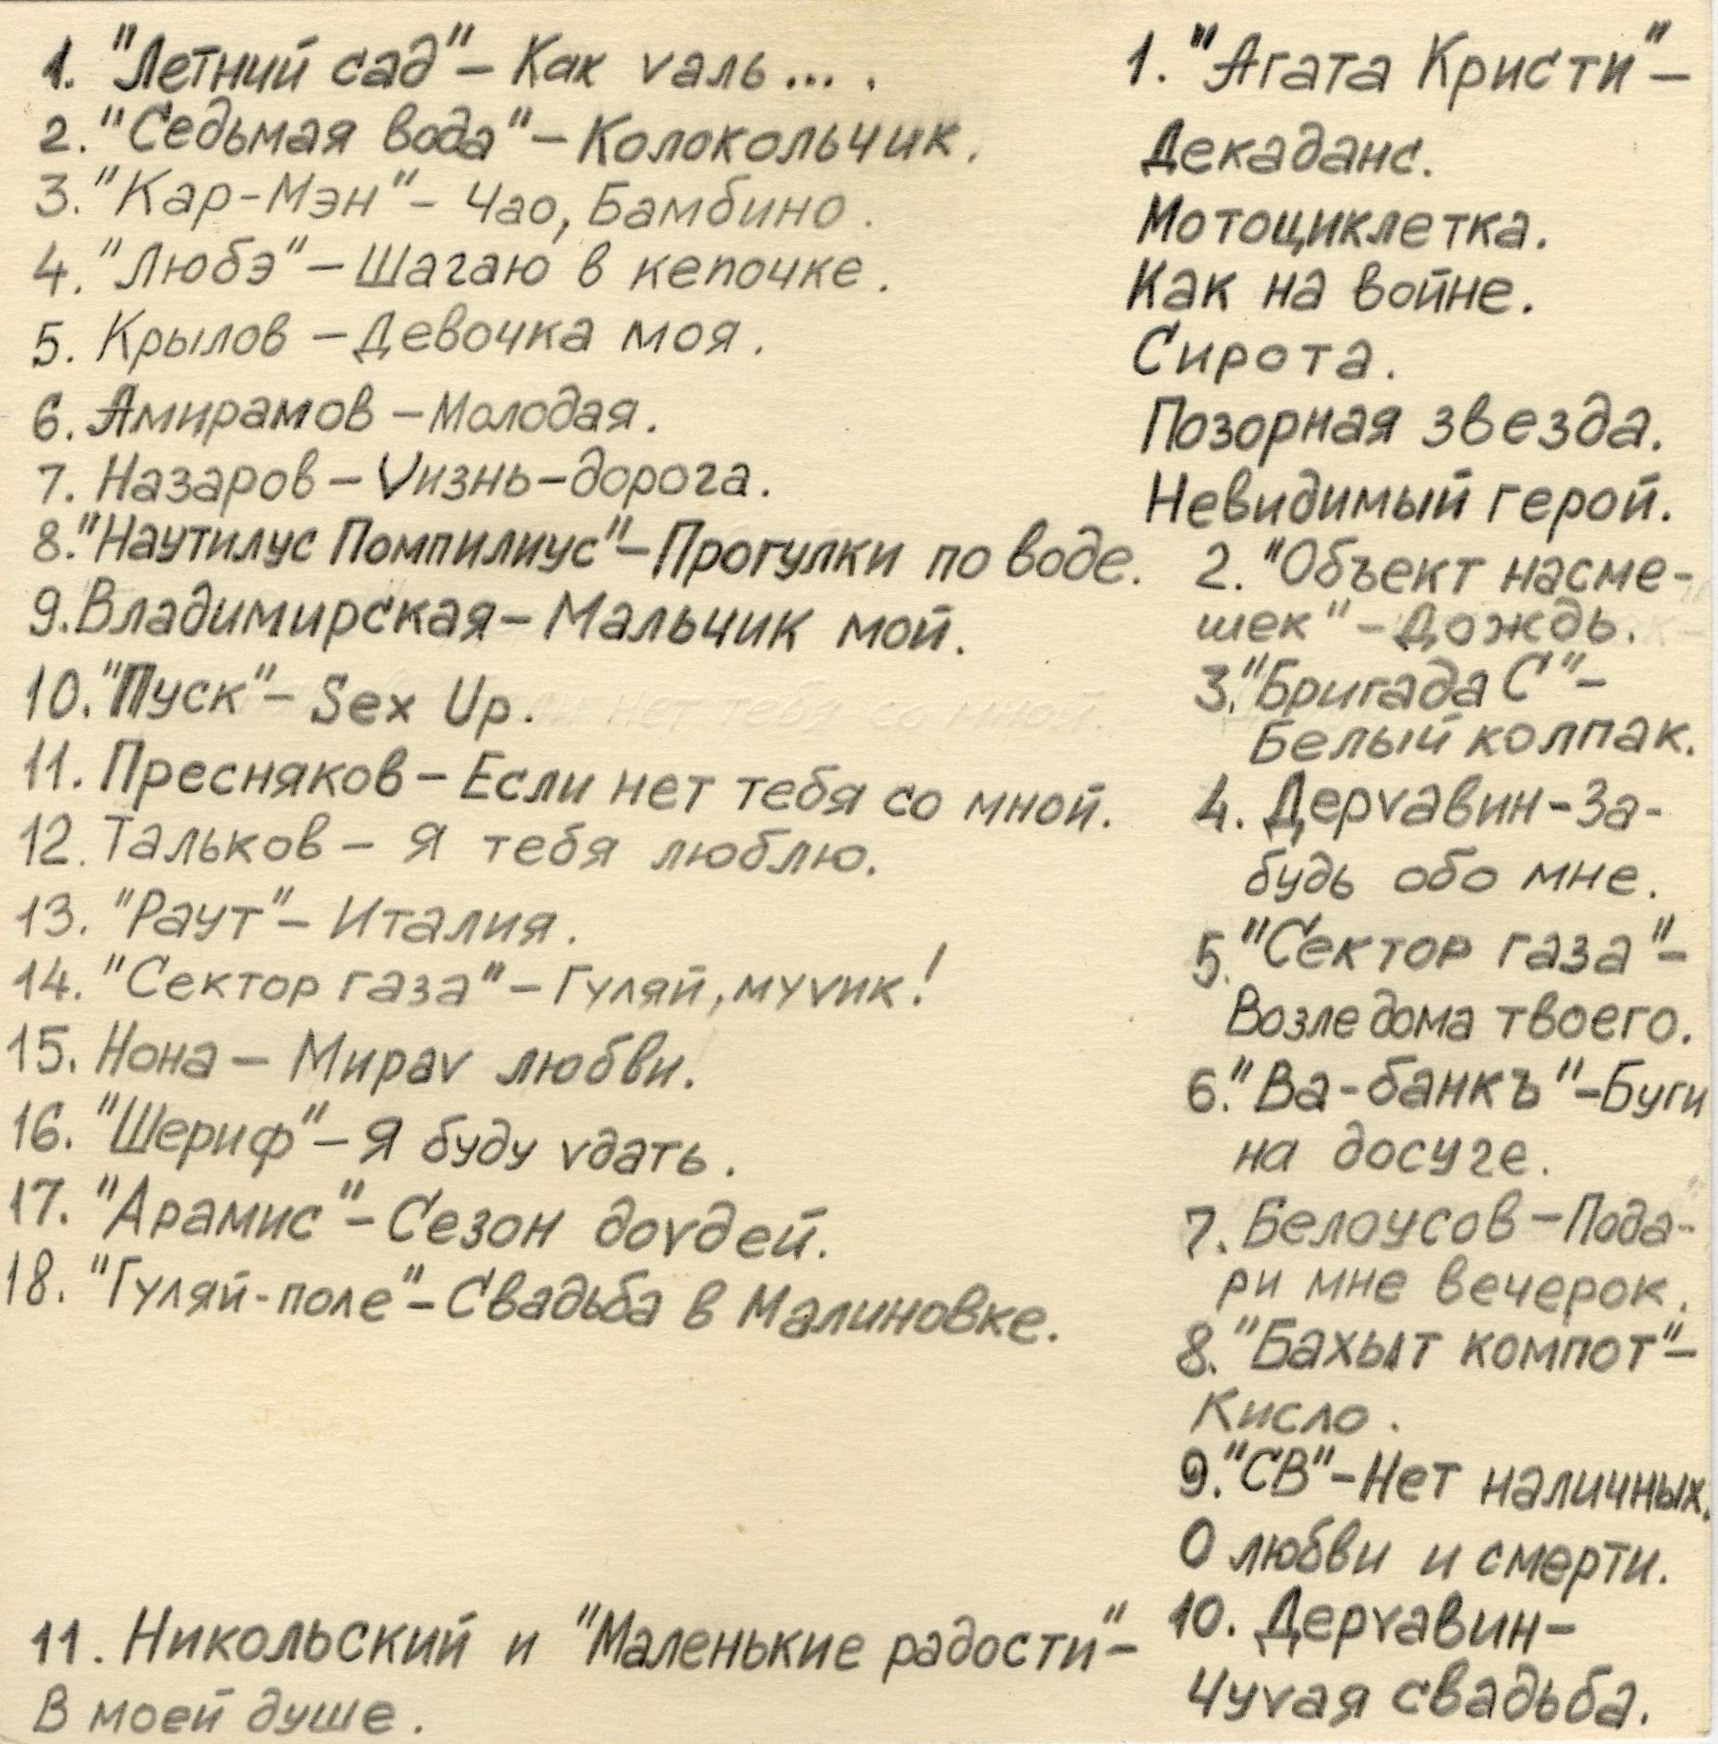 1. "Летний сад" – Как vаль... .
2. "Седьмая вода" – Колокольчик.
3. "Кар-Мэн" – Чао, Бамбино.
4. "Любэ" – Шагаю в кепочке.
5. Крылов – Девочка моя.
6. Амирамов – Молодая.
7. Назаров – Vизнь-дорога.
8. "Наутилус Помпилиус" – Прогулки по воде.
9. Владимирская – Мальчик мой.
10. "Пуск" – Sex Up.
11. Пресняков – Если нет тебя со мной.
12. Тальков – Я тебя люблю.
13. "Раут" – Италия.
14. "Сектор газа" – Гуляй, муvик!
15. Нона – Мираv любви.
16. "Шериф" – Я буду vдать.
17. "Арамис" – Сезон доvдей.
18. "Гуляй-поле" – Свадьба в Малиновке.
1. "Агата Кристи" –
Декаданс.
Мотоциклетка.
Как на войне.
Сирота.
Позорная звезда.
Невидимый герой.
2. "Объект насме-
шек" – Дождь.
3. "Бригада С" –
Белый колпак.
4. Державин – За-
будь обо мне.
5. "Сектор газа" –
Возле дома твоего.
6. "Ва-банкъ" – Буги
на досуге.
7. Белоусов – Пода-
ри мне вечерок.
8. "Бахыт компот" –
Кисло.
9. "СВ" – Нет наличных.
О любви и смерти.
10. Дерvавин –
Чуvая свадьба.
11. Никольский и "Маленькие радости" –
В моей душе.